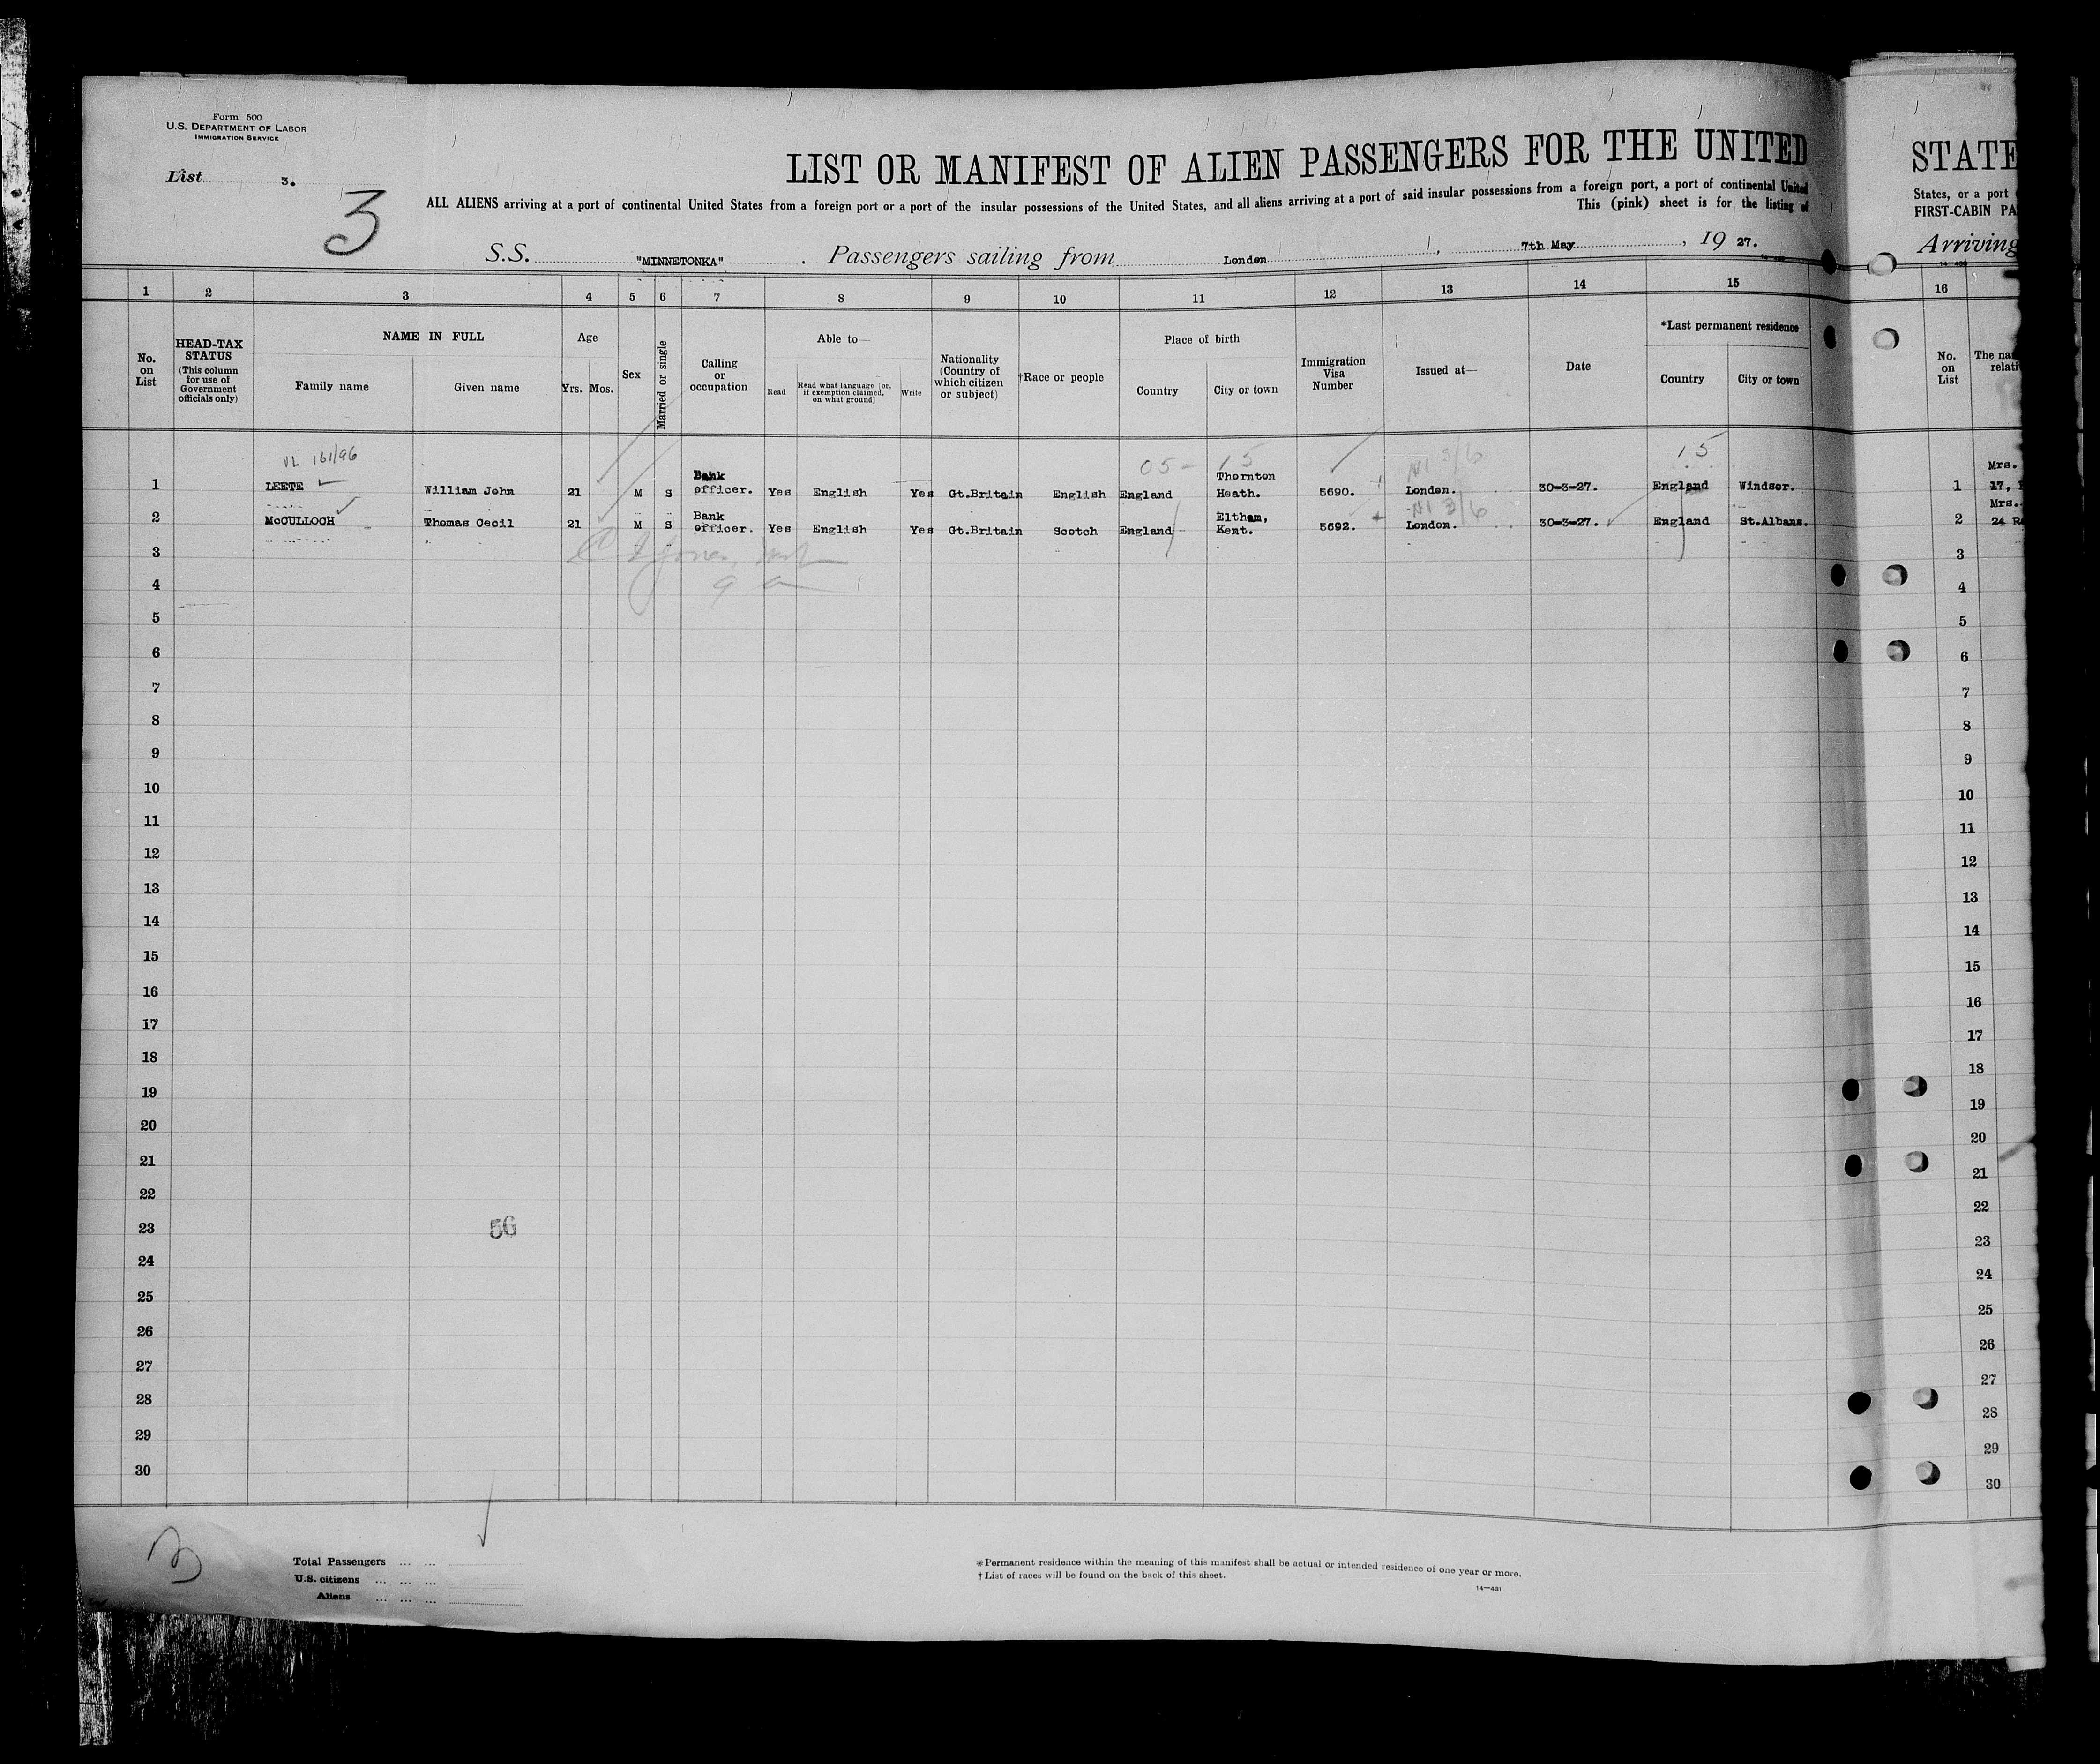 Form 500
U.S. DEPARTMENT OF LABOR
IMMIGRATION SERVICE
List 3.
3
LIST OR MANIFEST OF ALIEN PASSENGERS FOR THE UNITED
ALL ALIENS arriving at a port of continental United States from a foreign port or a port of the insular possessions of the United States, and all aliens arriving at a port of said insular possessions from a foreign port, a port of continental United
This (pink) sheet is for the listing of
S.S. "MINNETONKA". Passengers sailing from London, 7th May, 19 27.
STATE
States, or a port
FIRST-CABIN PA
Arriving
1 2 3 4 5 6 7 8 9 10 11 12 13 14 15 16
No. on List
HEAD-TAX STATUS (This column for use of Government officials only)
NAME IN FULL
Family name Given name
Age
Yrs. Mos.
Sex
Married or single
Calling or occupation
Able to—
Read Read what language [or, if exemption claimed, on what ground] Write
Nationality (Country of which citizen or subject)
†Race or people
Place of birth
Country City or town
Immigration Visa Number
Issued at—
Date
*Last permanent residence
Country City or town
No. on List
The na
relati
VL 161/96
05- 15 15
1 LEETE William John 21 M S Bank officer. Yes English Yes Gt.Britain English England Thornton Heath. 5690. London. 30-3-27. England Windsor. 1 Mrs. 17,
2 McCULLOCH Thomas Cecil 21 M S Bank officer. Yes English Yes Gt.Britain Scotch England Eltham, Kent. 5692. London. 30-3-27. England St.Albans. 2 Mrs. 24
3 3
4 4
5 5
6 6
7 7
8 8
9 9
10 10
11 11
12 12
13 13
14 14
15 15
16 16
17 17
18 18
19 19
20 20
21 21
22 22
23 56 23
24 24
25 25
26 26
27 27
28 28
29 29
30 30
Total Passengers ... ...
U.S. citizens ... ... ...
Aliens ... ... ...
*Permanent residence within the meaning of this manifest shall be actual or intended residence of one year or more.
†List of races will be found on the back of this sheet.
14—431